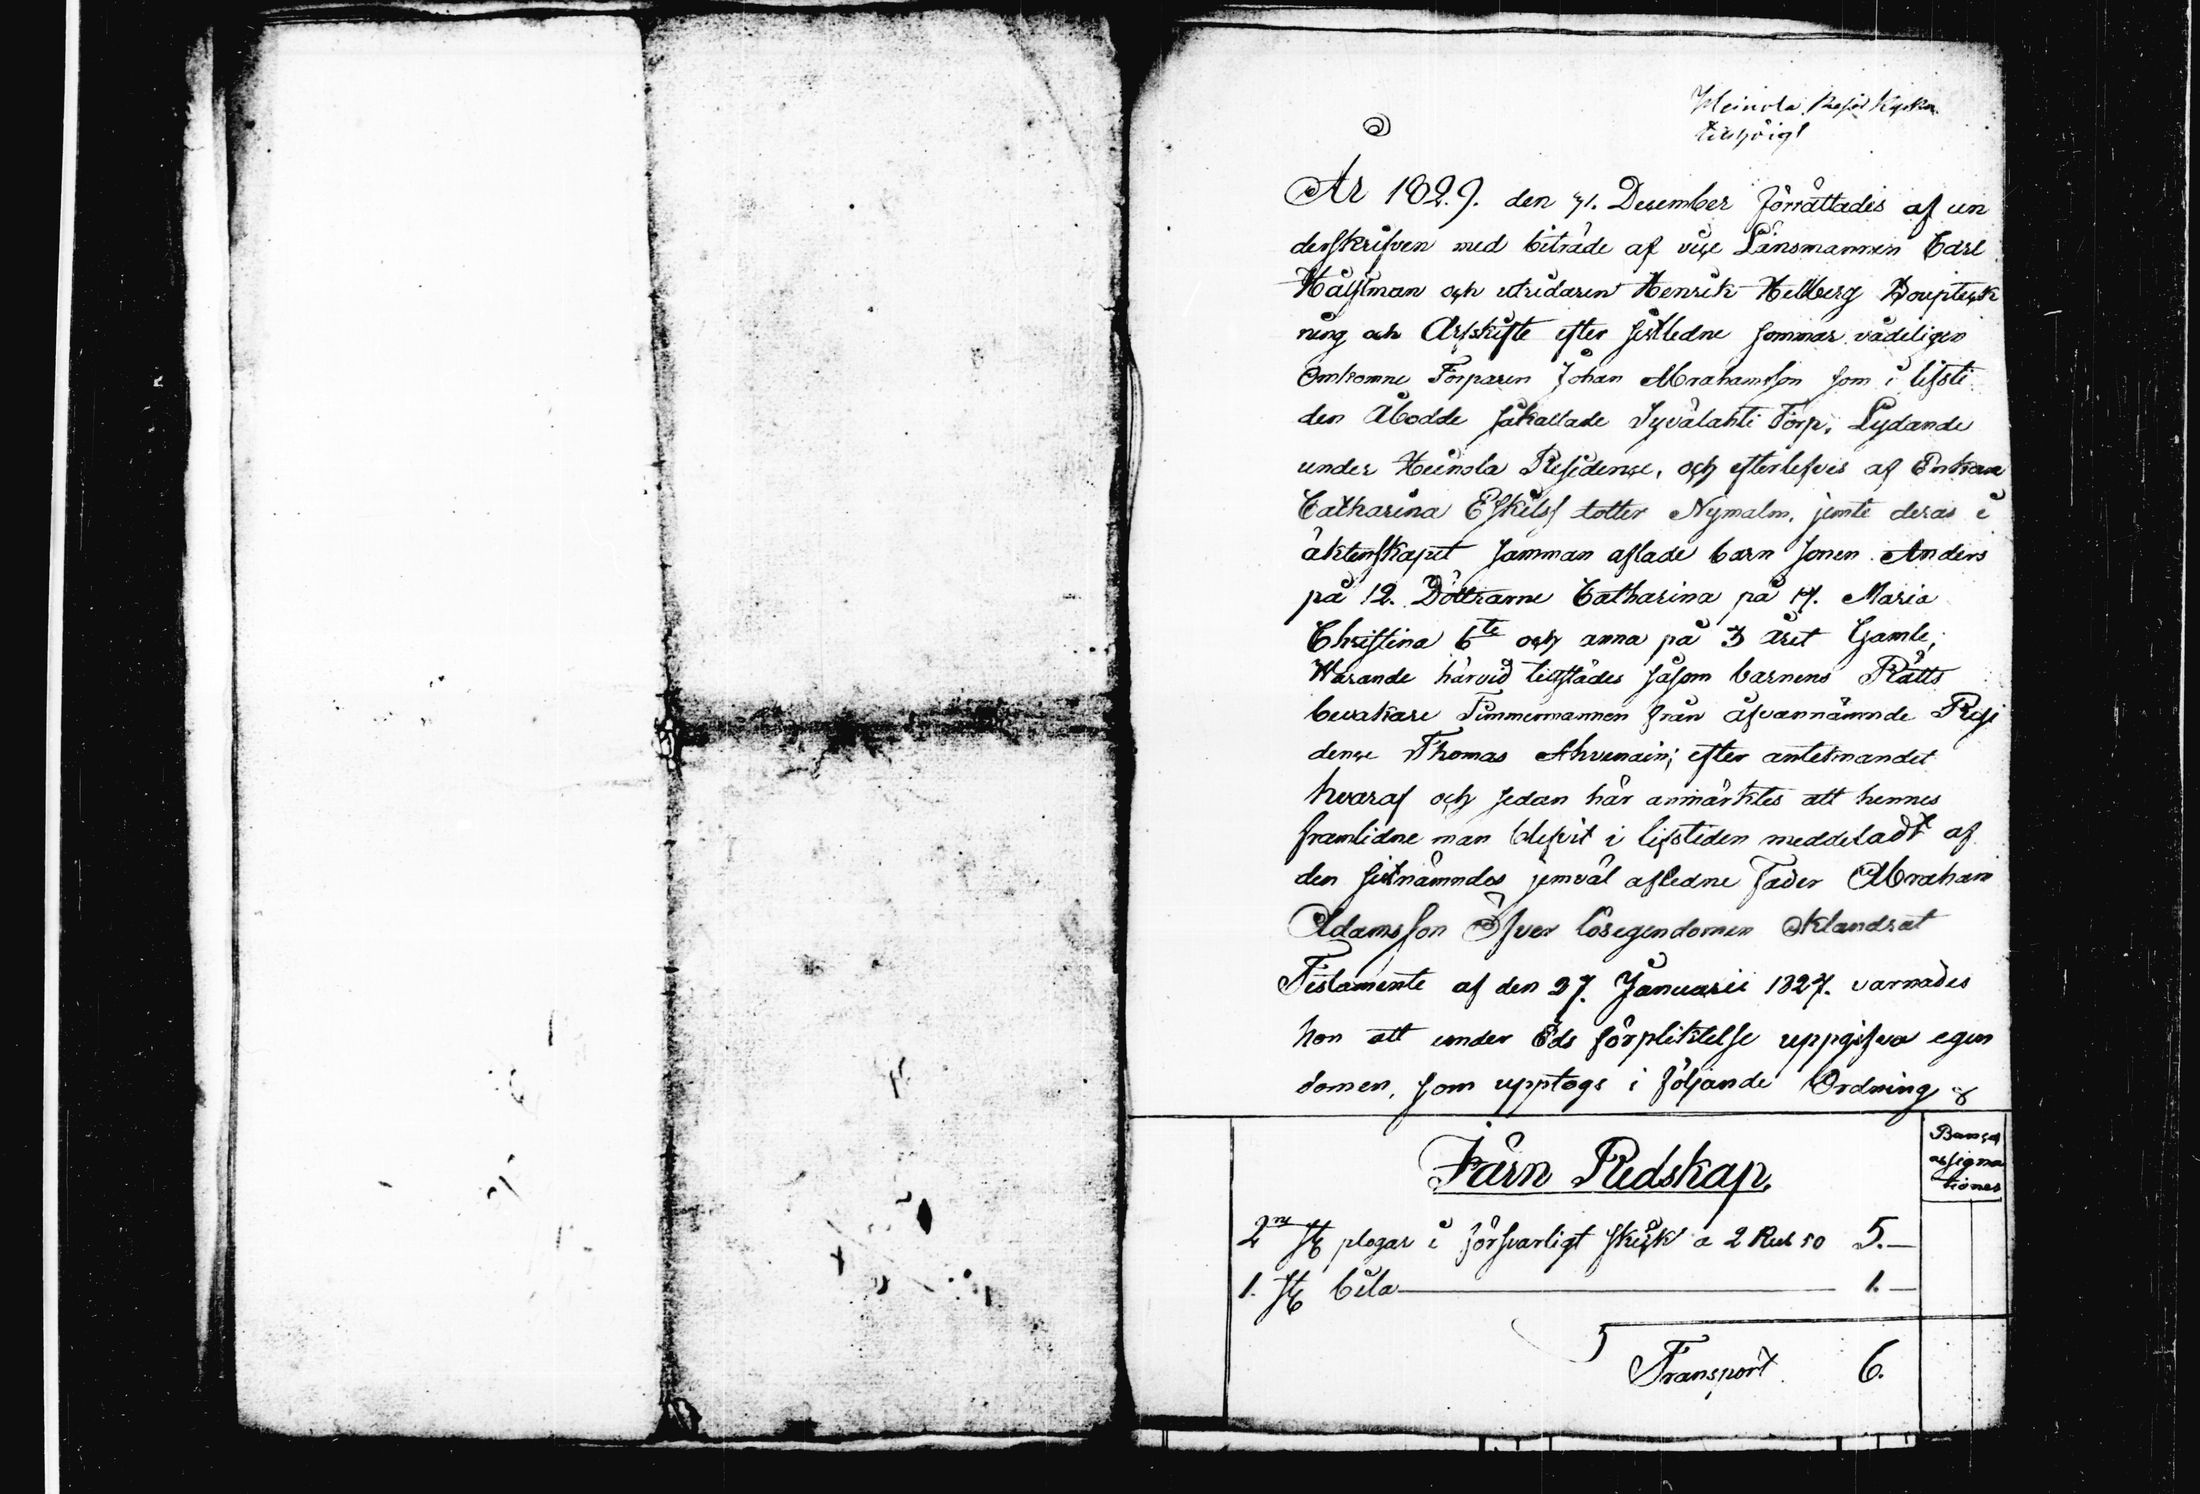 Heinola
År 1829. den 31. December förrättades af un
derskrifven med biträde af viçe Länsmannen Carl
och utridaren Henrik Hellberg Boupteçk
ning och Arfskifte efter sistledne sommar vådeligen
Omkomne Torparen Johan Abrahamsson som i lifsti
den Åbodde såkallade Syvälahti Torp, Lydande
under Heinola Residençe, och efterlefves af Enkan
Catharina Eskilsdotter Nymalm, jemte deras i
äktenskapet samman aflade barn sonen Anders
på 12. Döttrarne Catharina på 17. Maria
Christina 6te och anna på 3 året Gamle,
Warande härvid tillstädes såsom barnens Rätts
bevakare Timmermannen från åfvannämnde Resi
dençe Thomas Ahvenain; efter anletnandet
hvaraf och sedan här anmärktes att hennes
framlidne man blefvit i lifstiden meddeladt af
den sistnämndes jemväl afledne fader Abraham
Adamsson Öfver lösegendomen Oklandrat
Testamente af den 27. Januarii 1827. varnades
hon att under Eds förpliktelse uppgifva egen
domen, som upptogs i följande Ordning
Bançо
assigna
tioner
Järn Redskap.
2ne st plogar i försvarligt skiçk a 2 Rub 50 5.—
1. st bila 1.—
Transport 6.